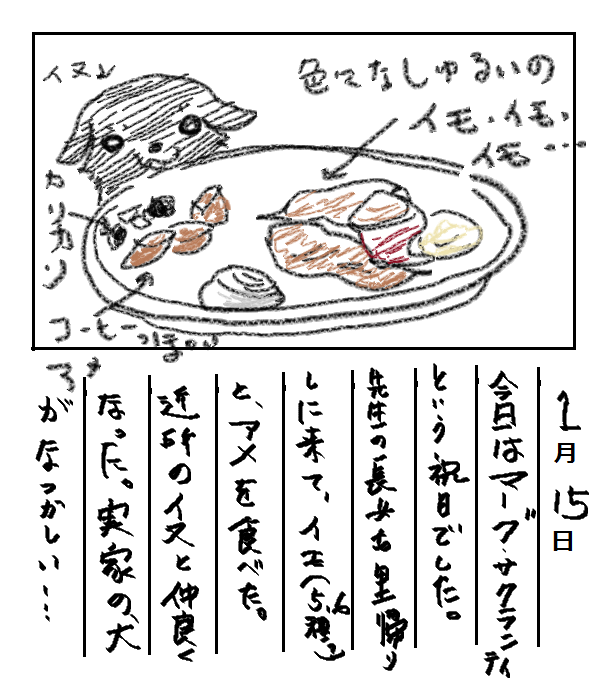 イヌ
色々なしゅるいの
イモ、イモ、
イモ…
カリカン
コーヒーっぽい
1月15日
今日はマーグ・サクランティ
という祝日でした。
先生の長女が里帰り
しに来て、イモ(5、6種)
と、アメを食べた。
近所のイヌと仲良く
なった。実家の犬
がなつかしい…